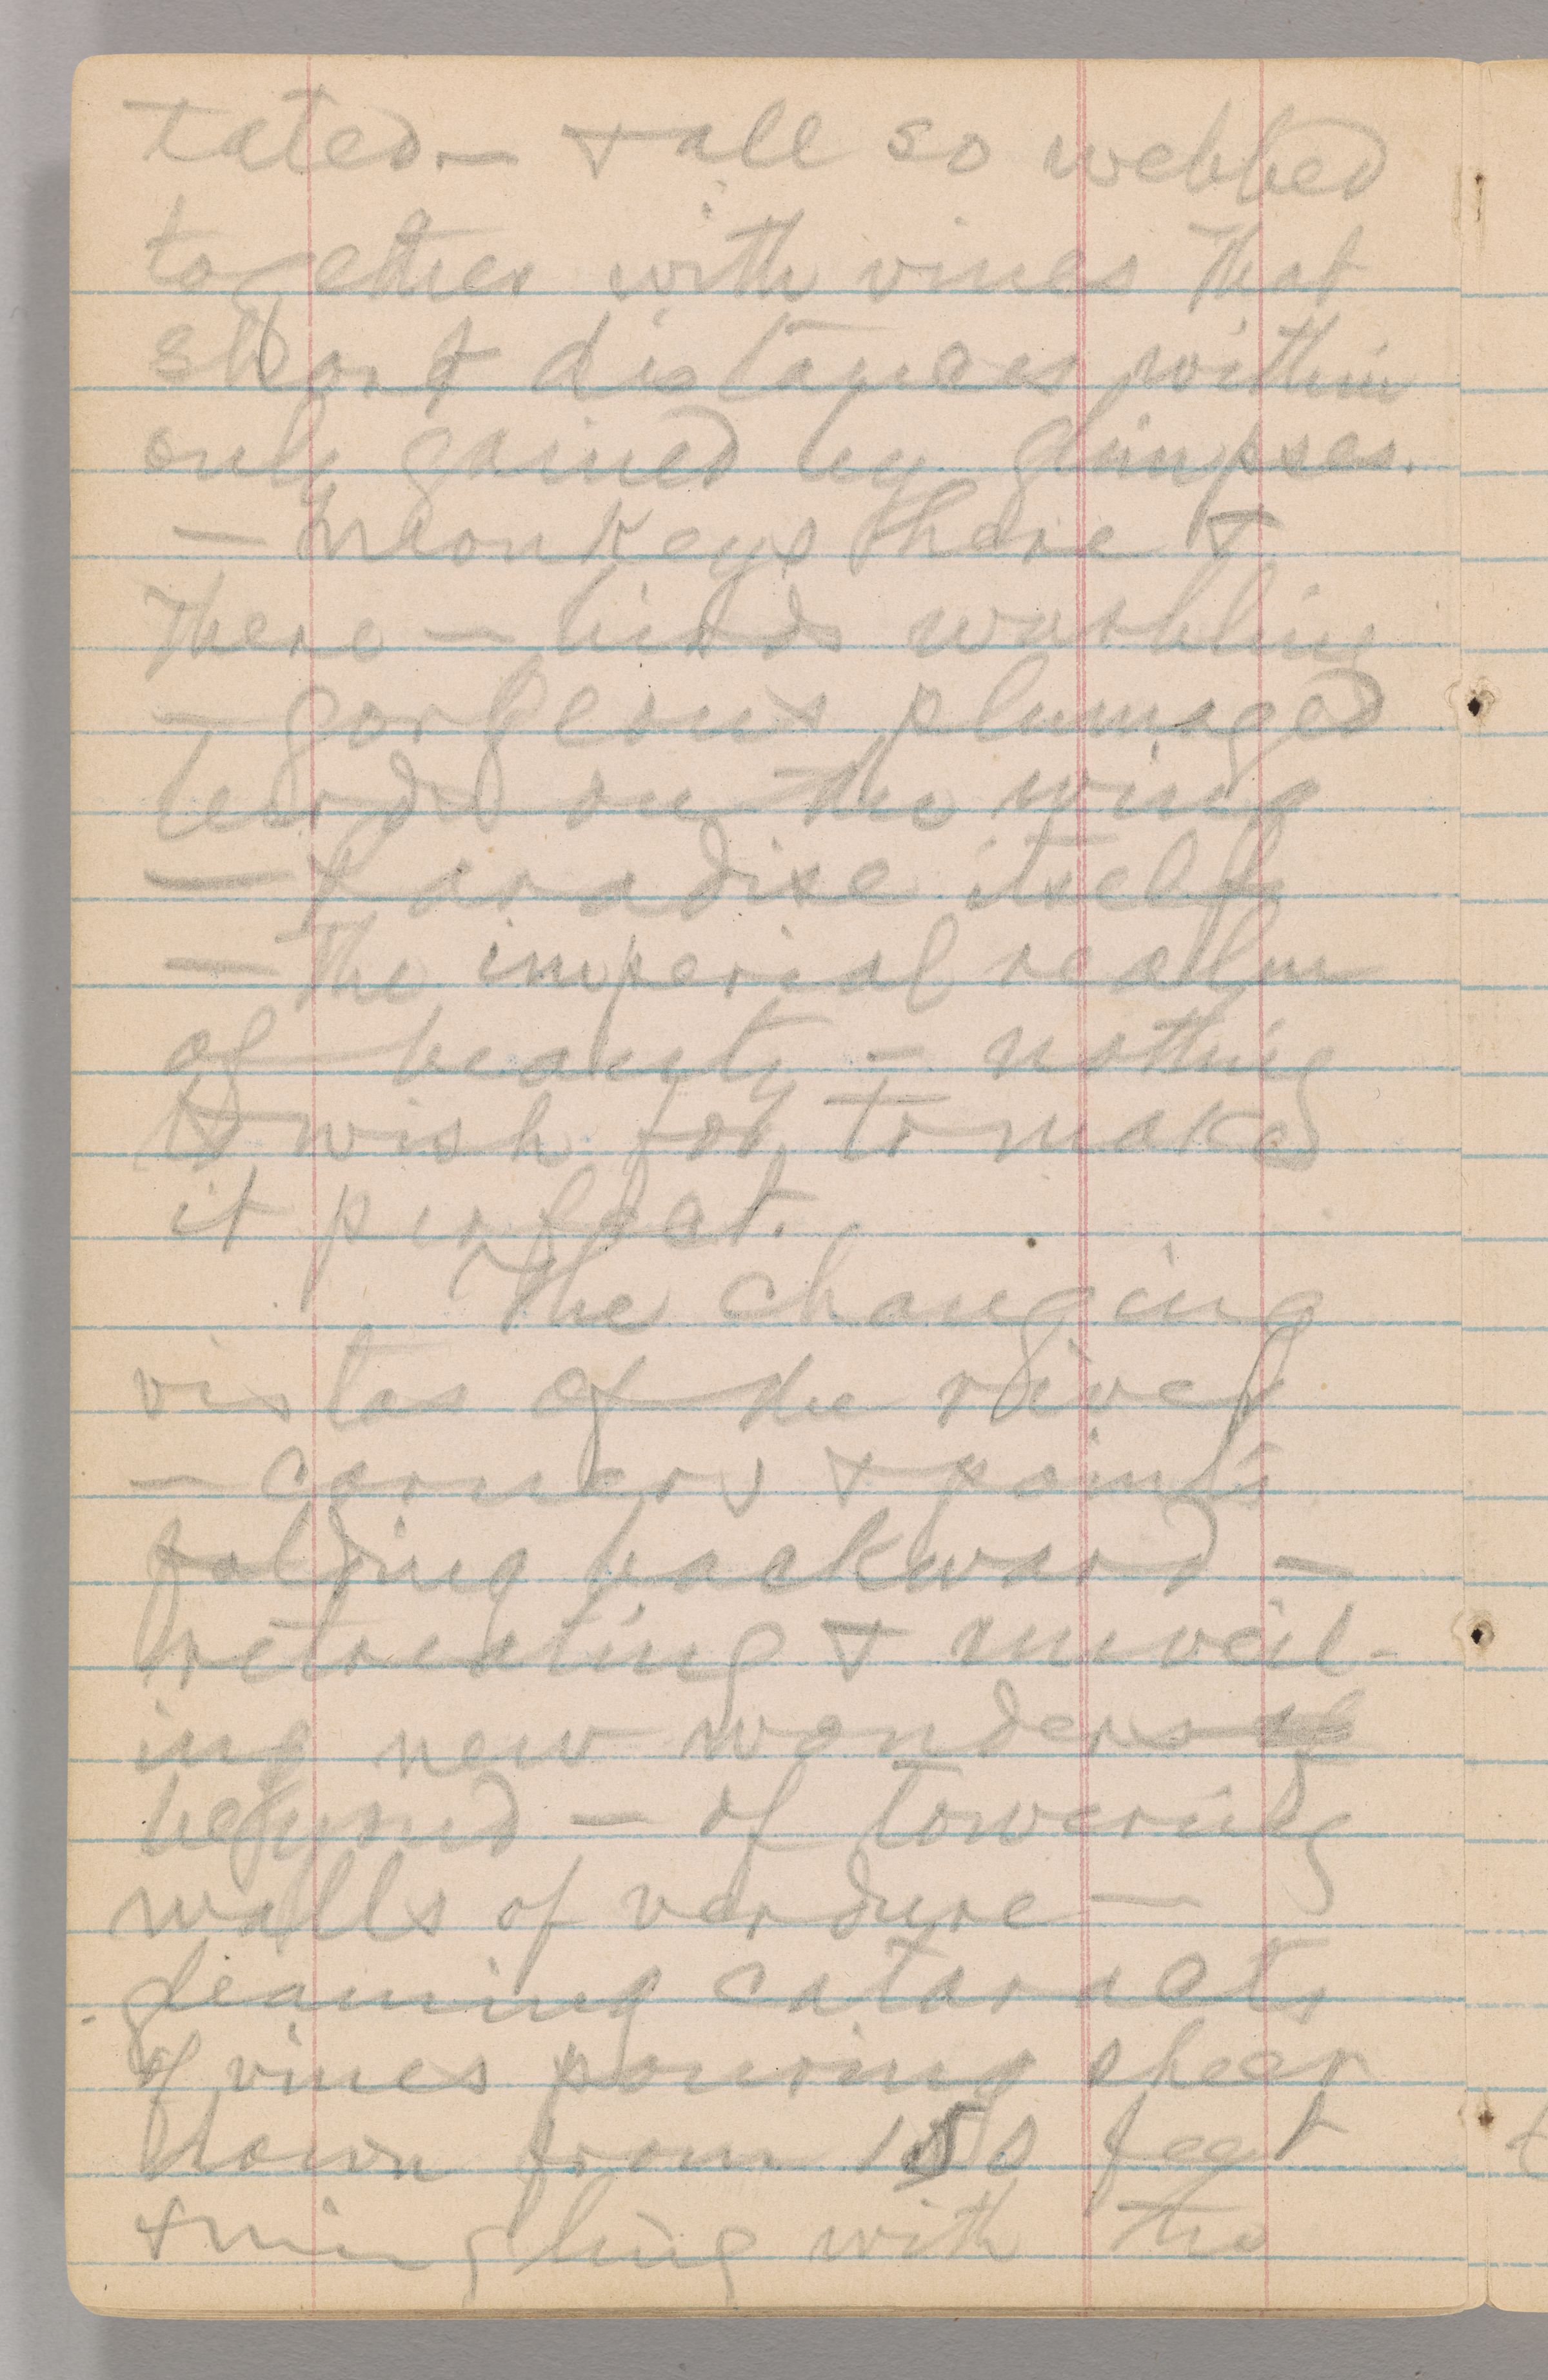 tated — & all so webbed
together with vines that
short distances within
only gained by glimpses.
— Monkeys here &
there — birds warbling
— gorgeous plumaged
birds on the wing
— Paradise itself
— the imperial realm
of beauty — nothing
to wish for to make
it perfect.
The changing
vistas of the river
— corners & points
folding backward —
retreating & unveil-
ing new wonders
beyond — of towering
walls of verdure —
gleaming cataracts
of vines pouring sheer
down from 150 feet
& mingling with the